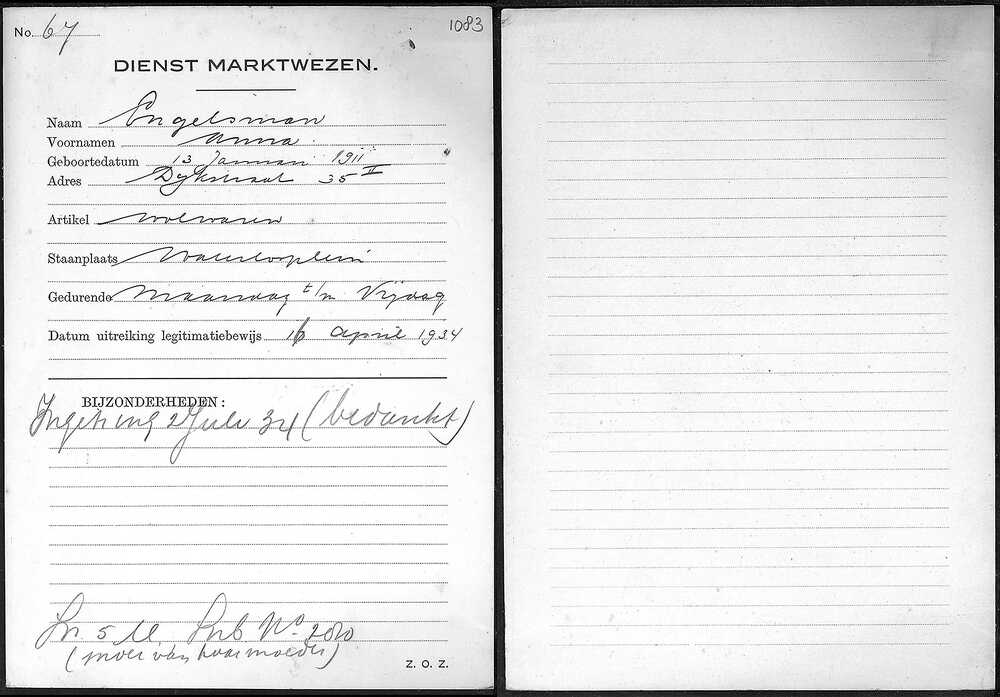 No. 67
1083
DIENST MARKTWEZEN.
Naam Engelsman
Voornamen Anna
Geboortedatum 13 Januari 1911
Adres Dijkstraat 35 II
Artikel wolwaren
Staanplaats Waterlooplein
Gedurende Maandag t/m Vrijdag
Datum uitreiking legitimatiebewijs 16 April 1934
BIJZONDERHEDEN:
2 Juli 34 (bedankt)
5 No. 2080
(van haar moeder)
Z. O. Z.